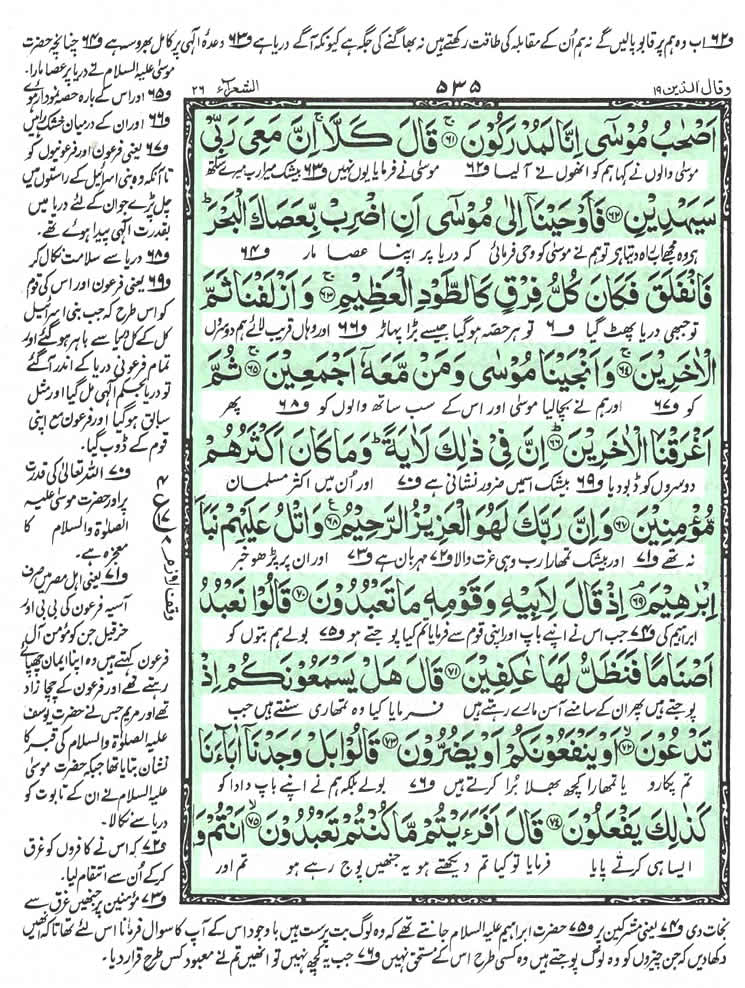 و۶۲ اب وہ ہم پر قابو پالیں گے نہ ہم اُن کے مقابلہ کی طاقت رکھتے ہیں نہ بھاگنے کی جگہ ہے کیونکہ آگے دریا ہے و۶۳ وعدۂ الٰہی پر کامل بھروسہ ہے و۶۴ چنانچہ حضرت
موسیٰ علیہ السلام نے دریا پر عصا مارا۔
و۶۵ اور اس کے بارہ حصہ نمودار ہوئے
و۶۶ اور ان کے درمیان خشک راہیں
و۶۷ یعنی فرعون اور فرعونیوں کو
تاآنکہ وہ بنی اسرائیل کے راستوں میں
چل پڑے جو ان کے لئے دریا میں
بقدرت الٰہی پیدا ہوئے تھے۔
و۶۸ دریا سے سلامت نکال کر
و۶۹ یعنی فرعون اور اس کی قوم
کو اس طرح کہ جب بنی اسرائیل
کل کے کل دریا سے باہر ہو گئے اور
تمام فرعونی دریا کے اندر آ گئے
تو دریا بحکم الٰہی مل گیا اور مثل
سابق ہو گیا اور فرعون مع اپنی
قوم کے ڈوب گیا۔
و۷۰ اللہ تعالیٰ کی قدرت
پر اور حضرت موسیٰ علیہ
الصلوٰۃ والسلام کا
معجزہ ہے۔
و۷۱ یعنی اہل مصر میں صرف
آسیہ فرعون کی بی بی اور
حزقیل جن کو مؤمن آل
فرعون کہتے ہیں وہ اپنا ایمان چھپائے
رہتے تھے اور فرعون کے چچا زاد
تھے اور مریم جس نے حضرت یوسف
علیہ الصلوٰۃ والسلام کی قبر کا
نشان بتایا تھا جبکہ حضرت موسیٰ
علیہ السلام نے ان کے تابوت کو
دریا سے نکالا۔
و۷۲ کہ اس نے کافروں کو غرق
کر کے اُن سے انتقام لیا۔
و۷۳ مؤمنین پر جنھیں غرق سے
وقال الذین ۱۹
۵۳۵
الشعرآء ۲۶
اَصۡحٰبُ مُوۡسٰۤی اِنَّا لَمُدۡرَکُوۡنَ ۶۱ قَالَ کَلَّا ۚ اِنَّ مَعِیَ رَبِّیۡ
موسیٰ والوں نے کہا ہم کو انھوں نے آ لیا و۶۲ موسیٰ نے فرمایا یوں نہیں و۶۳ بیشک میرا رب میرے ساتھ
سَیَہۡدِیۡنِ ۶۲ فَاَوۡحَیۡنَاۤ اِلٰی مُوۡسٰۤی اَنِ اضۡرِبۡ بِّعَصَاکَ الۡبَحۡرَ ؕ
ہے وہ مجھے اب راہ دیتا ہے تو ہم نے موسیٰ کو وحی فرمائی کہ دریا پر اپنا عصا مار و۶۴
فَانۡفَلَقَ فَکَانَ کُلُّ فِرۡقٍ کَالطَّوۡدِ الۡعَظِیۡمِ ۶۳ وَ اَزۡلَفۡنَا ثَمَّ
تو جبھی دریا پھٹ گیا و۶ تو ہر حصہ ہو گیا جیسے بڑا پہاڑ و۶۶ اور وہاں قریب لائے ہم دوسروں
الۡاٰخَرِیۡنَ ۶۴ وَ اَنۡجَیۡنَا مُوۡسٰی وَ مَنۡ مَّعَہٗۤ اَجۡمَعِیۡنَ ۶۵ ثُمَّ
کو و۶۷ اور ہم نے بچا لیا موسیٰ اور اس کے سب ساتھ والوں کو و۶۸ پھر
اَغۡرَقۡنَا الۡاٰخَرِیۡنَ ۶۶ اِنَّ فِیۡ ذٰلِکَ لَاٰیَۃً ؕ وَ مَا کَانَ اَکۡثَرُہُمۡ
دوسروں کو ڈبو دیا و۶۹ بیشک اس میں ضرور نشانی ہے و۷۰ اور اُن میں اکثر مسلمان
مُّؤۡمِنِیۡنَ ۶۷ وَ اِنَّ رَبَّکَ لَہُوَ الۡعَزِیۡزُ الرَّحِیۡمُ ۶۸ وَ اتۡلُ عَلَیۡہِمۡ نَبَاَ
نہ تھے و۷۱ اور بیشک تمھارا رب وہی عزت والا و۷۲ مہربان ہے و۷۳ اور ان پر پڑھو خبر
اِبۡرٰہِیۡمَ ۶۹ اِذۡ قَالَ لِاَبِیۡہِ وَ قَوۡمِہٖ مَا تَعۡبُدُوۡنَ ۷۰ قَالُوۡا نَعۡبُدُ
ابراہیم کی و۷۴ جب اس نے اپنے باپ اور اپنی قوم سے فرمایا تم کیا پوجتے ہو و۷۵ بولے ہم بتوں کو
اَصۡنَامًا فَنَظَلُّ لَہَا عٰکِفِیۡنَ ۷۱ قَالَ ہَلۡ یَسۡمَعُوۡنَکُمۡ اِذۡ
پوجتے ہیں پھر ان کے سامنے آسن مارے رہتے ہیں فرمایا کیا وہ تمھاری سنتے ہیں جب
تَدۡعُوۡنَ ۷۲ اَوۡ یَنۡفَعُوۡنَکُمۡ اَوۡ یَضُرُّوۡنَ ۷۳ قَالُوۡا بَلۡ وَجَدۡنَاۤ اٰبَآءَنَا
تم پکارو یا تمھارا کچھ بھلا برا کرتے ہیں و۷۶ بولے بلکہ ہم نے اپنے باپ دادا کو
کَذٰلِکَ یَفۡعَلُوۡنَ ۷۴ قَالَ اَفَرَءَیۡتُمۡ مَّا کُنۡتُمۡ تَعۡبُدُوۡنَ ۷۵ اَنۡتُمۡ وَ
ایسا ہی کرتے پایا فرمایا تو کیا تم دیکھتے ہو یہ جنھیں پوج رہے ہو تم اور
نجات دی و۷۴ یعنی مشرکین پر و۷۵ حضرت ابراہیم علیہ السلام جانتے تھے کہ وہ لوگ بت پرست ہیں باوجود اس کے آپ کا سوال فرمانا اس لئے تھا تاکہ انھیں
دکھا دیں کہ جن چیزوں کو وہ لوگ پوجتے ہیں وہ کسی طرح اس کے مستحق نہیں و۷۶ جب یہ کچھ نہیں تو انھیں تم نے معبود کس طرح قرار دیا۔